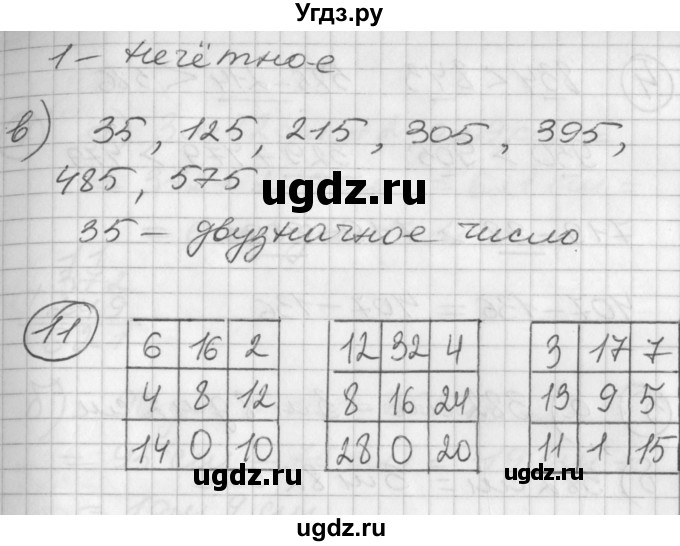 Угдз.ру
1 - нечётное
в) 35, 125, 215, 305, 395,
485, 575
ugdz.ru
35 - двузначное число
11
6 16 2
4 8 12
14 0 10
12 32 4
8 16 24
28 0 20
3 17 7
13 9 5
11 1 15
ugdz.ru
ugdz.ru
ugdz.ru
ugdz.ru